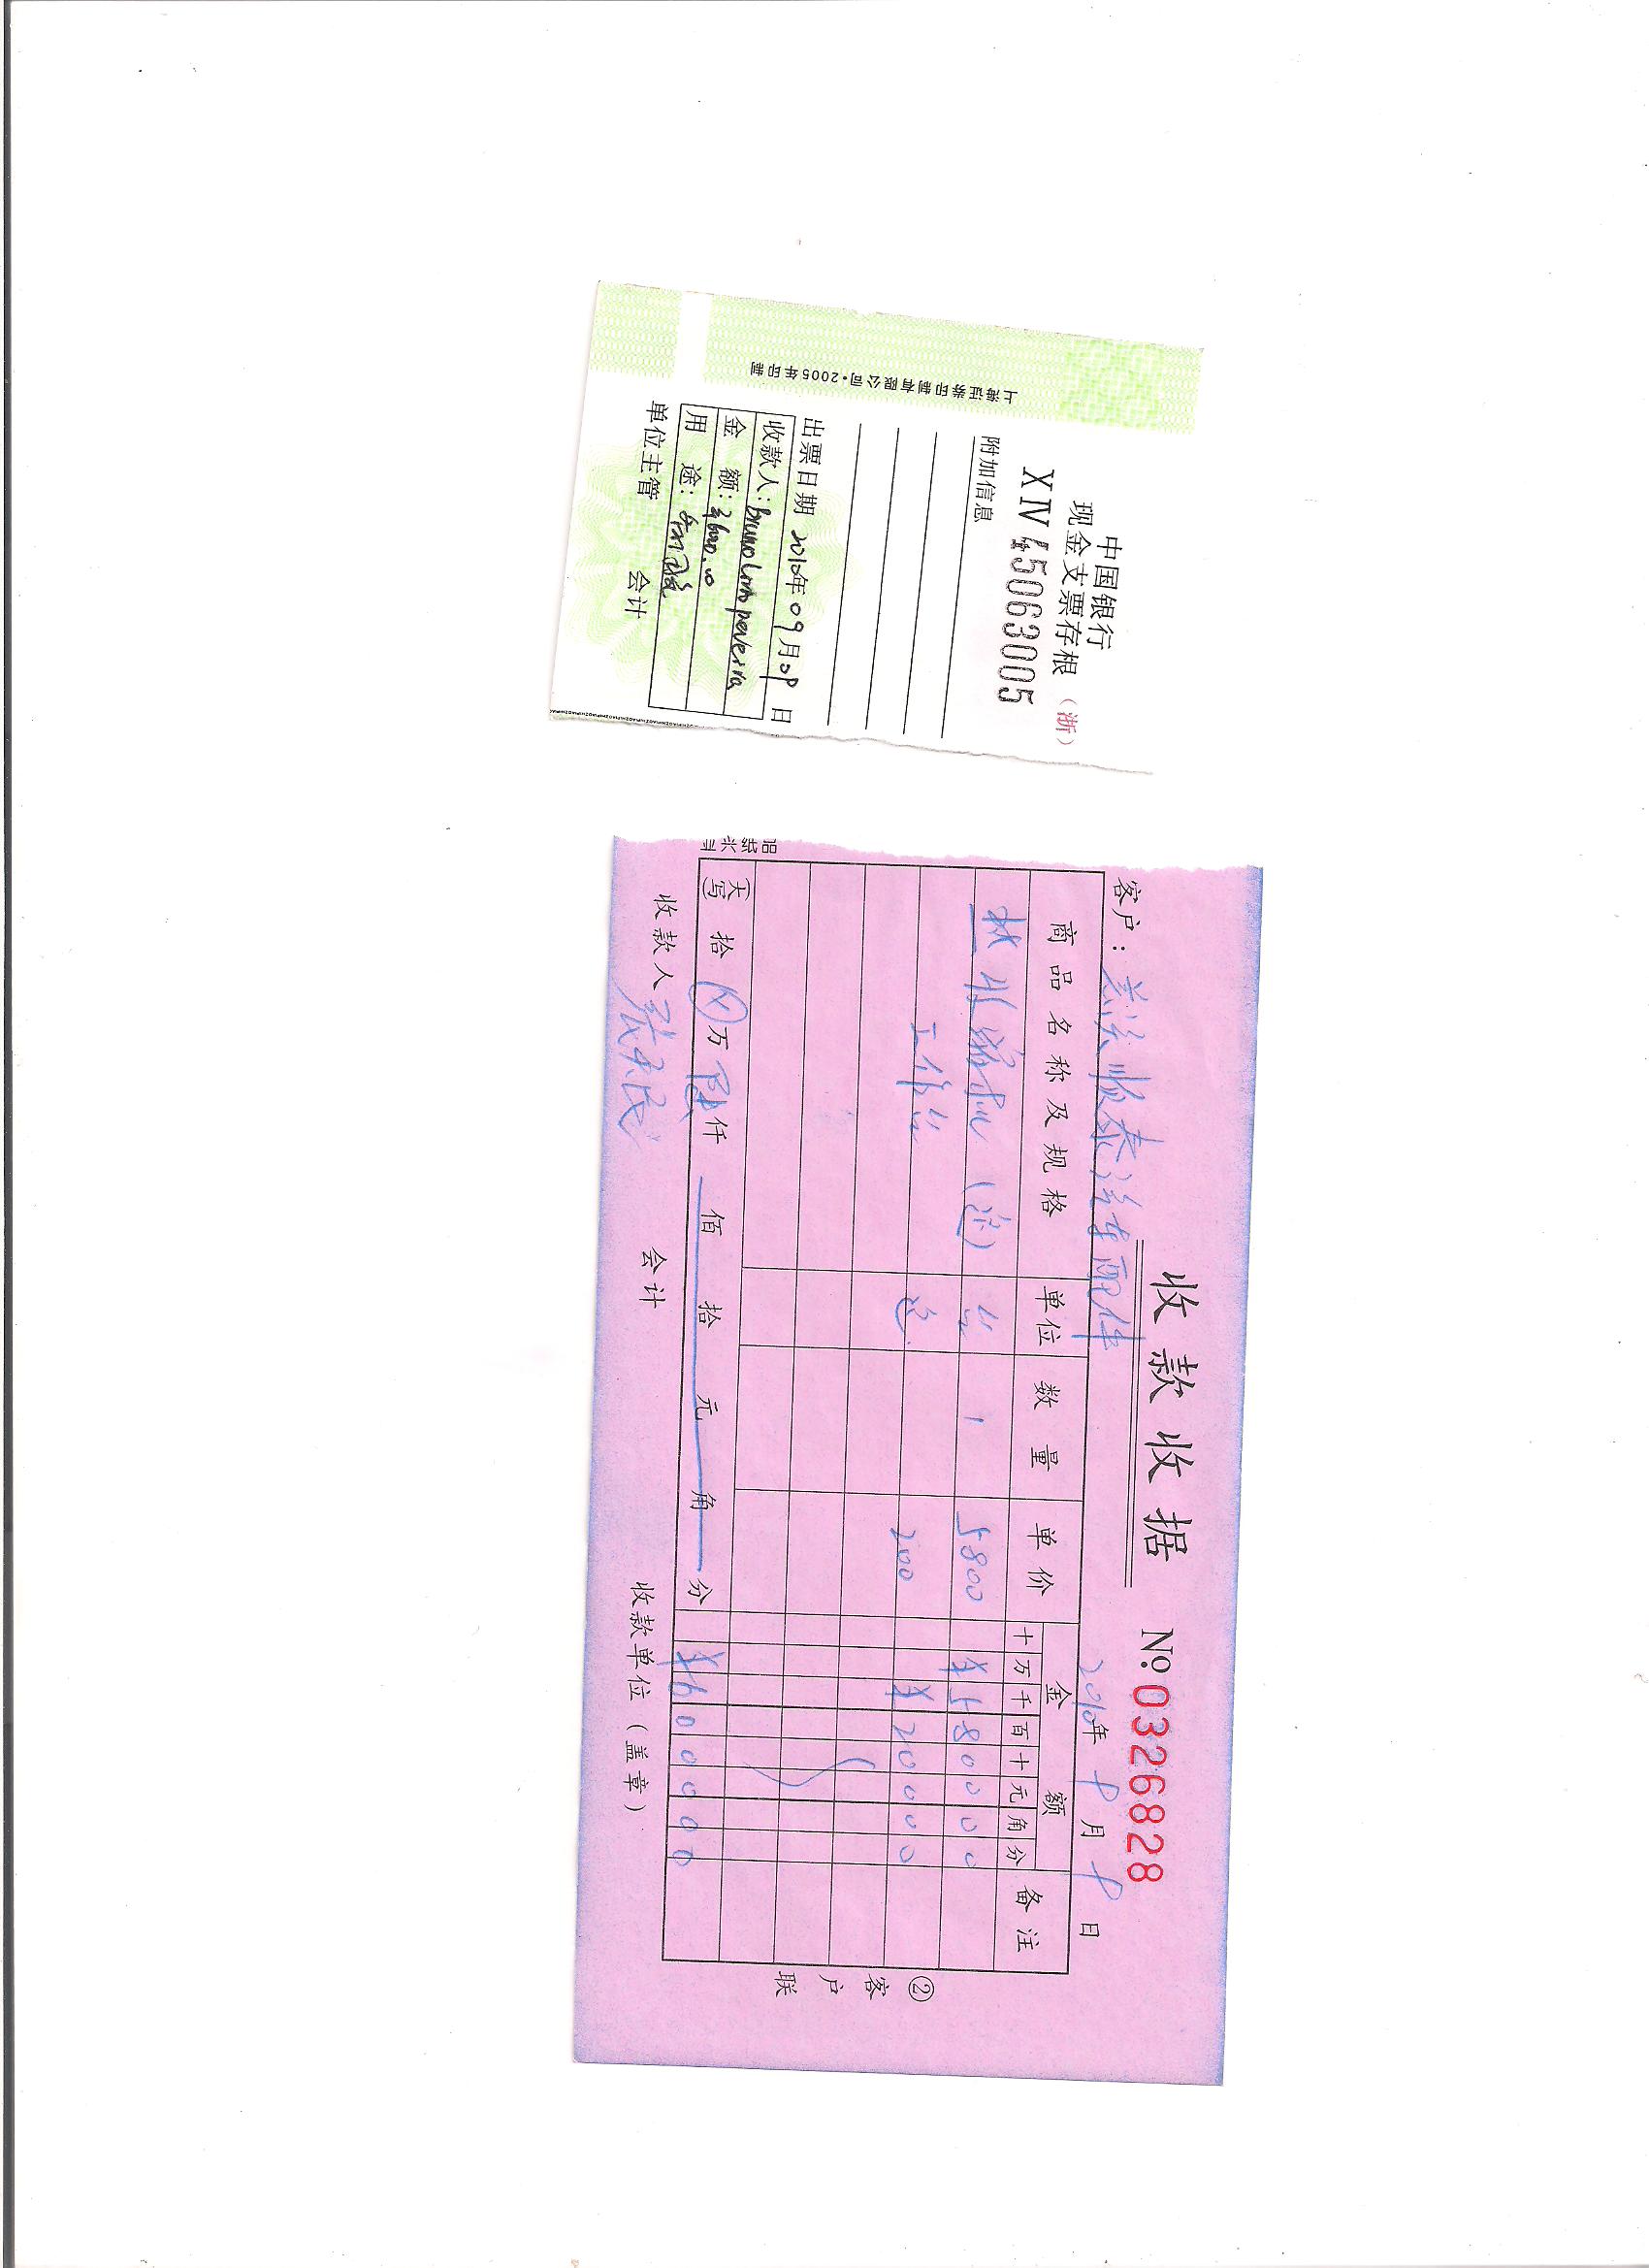 中国银行
现金支票存根 (浙)
XIV 45063005
附加信息
出票日期 2010年09月09日
收款人:Bruno
金 额:
用 途:
单位主管 会计
上海证券印制有限公司·2005年印制
收款收据 No. 0326828
客户: 顺泰汽车配件 2010年 9月 9日
商品名称及规格 单位 数量 单价 金额 备注
十 万 千 百 十 元 角 分
(旧) 台 1 5800 ¥580000
工作台 200 ¥20000
(大写) 拾 万 陆仟 佰 拾 元 角 分 ¥600000
收款人 会计 收款单位(盖章)
②客户联